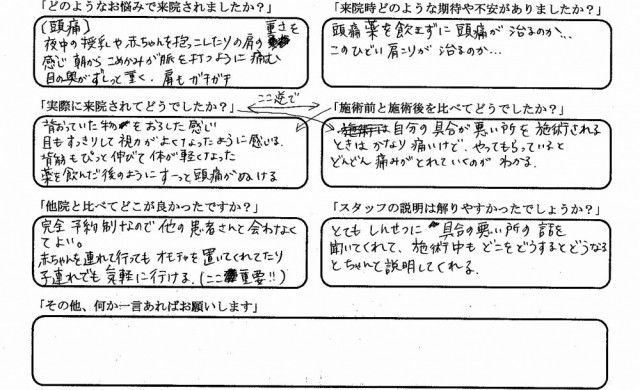 「どのようなお悩みで来院されましたか？」
(頭痛)
夜中の授乳や赤ちゃんを抱っこしたりの肩の重さを
感じ 朝から こめかみが脈を打つように痛む
目の奥がずしっと重く、肩もガチガチ
「来院時どのような期待や不安がありましたか？」
頭痛薬を飲まずに頭痛が治るのか...
このひどい肩こりが治るのか...
「実際に来院されてどうでしたか？」
ここ逆で
背おっていた物をおろした感じ
目もすっきりして視力がよくなったように感じる。
背筋もぴっと伸びて体が軽くなった
薬を飲んだ後のようにすーっと頭痛がぬける
「施術前と施術後を比べてどうでしたか？」
施術は自分の具合が悪い所を施術される
ときはかなり痛いけど、やってもらっていると
どんどん痛みがとれていくのがわかる。
「他院と比べてどこが良かったですか？」
完全予約制なので他の患者さんと会わなく
てよい。
赤ちゃんを連れて行ってもオモチャを置いてくれてたり
子連れでも気軽に行ける。(ここ重要!!)
「スタッフの説明は解りやすかったでしょうか？」
とてもしんせつに具合の悪い所の話を
聞いてくれて、施術中もどこをどうするとどうなる
とちゃんと説明してくれる。
「その他、何か一言あればお願いします」